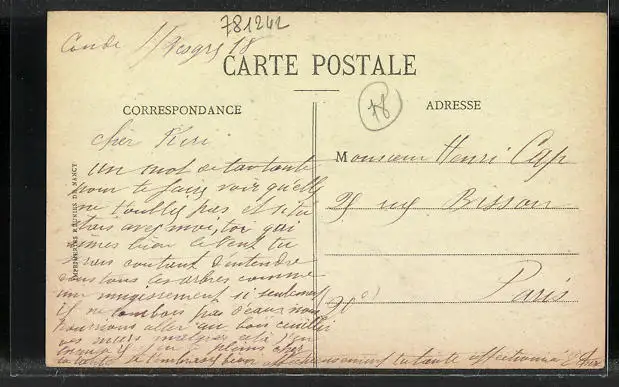 781242
Condé s/Vesgre 78
CARTE POSTALE
78
CORRESPONDANCE
ADRESSE
IMPRIMERIES RÉUNIES DE NANCY
Cher Riri
un mot de ta tante
pour te faire voir qu'elle
ne t'oublie pas et si tu
étais avec moi, toi qui
aimes bien le vent tu
serais content d'entendre
dans tous ces arbres comme
un mugissement si seulement
il ne tombais pas d'eau nous
pourrions aller au bois cueillir
des mures malgré cela
la tante t'embrasse bien affectueusement ta tante affectionnée
Monsieur Henri Cap
25 rue Bisson
Paris
(20e)